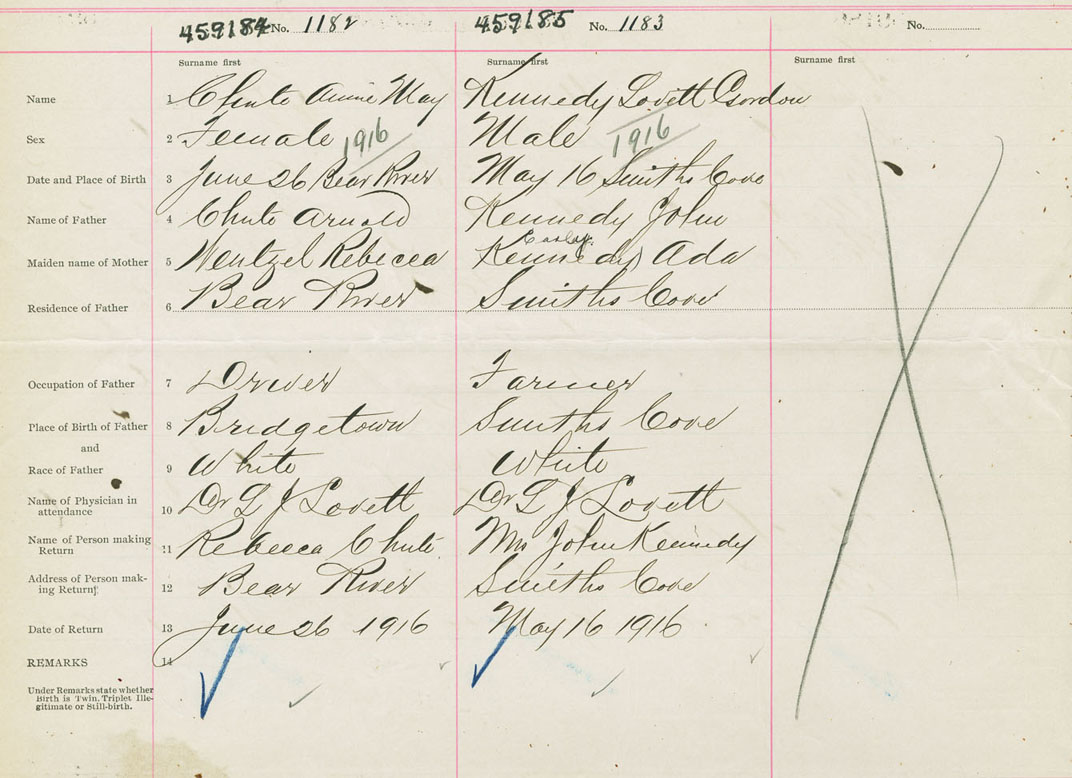 459184 No. 1182 459185 No. 1183 No.
Surname first Surname first Surname first
Name 1 Chute Annie May Kennedy Lovett Gordon
Sex 2 Female 1916 Male 1916
Date and Place of Birth 3 June 26 Bear River May 16 Smiths Cove
Name of Father 4 Chute Arnold Kennedy John
Maiden name of Mother 5 Wentzel Rebecca Kennedy Ada
Residence of Father 6 Bear River Smiths Cove
Occupation of Father 7 Driver Farmer
Place of Birth of Father 8 Bridgetown Smiths Cove
and
Race of Father 9 White White
Name of Physician in
attendance 10 Dr L J Lovett Dr L J Lovett
Name of Person making
Return 11 Rebecca Chute Mrs John Kennedy
Address of Person mak-
ing Return 12 Bear River Smiths Cove
Date of Return 13 June 26 1916 May 16 1916
REMARKS 14
Under Remarks state whether
Birth is Twin, Triplet Ille-
gitimate or Still-birth.